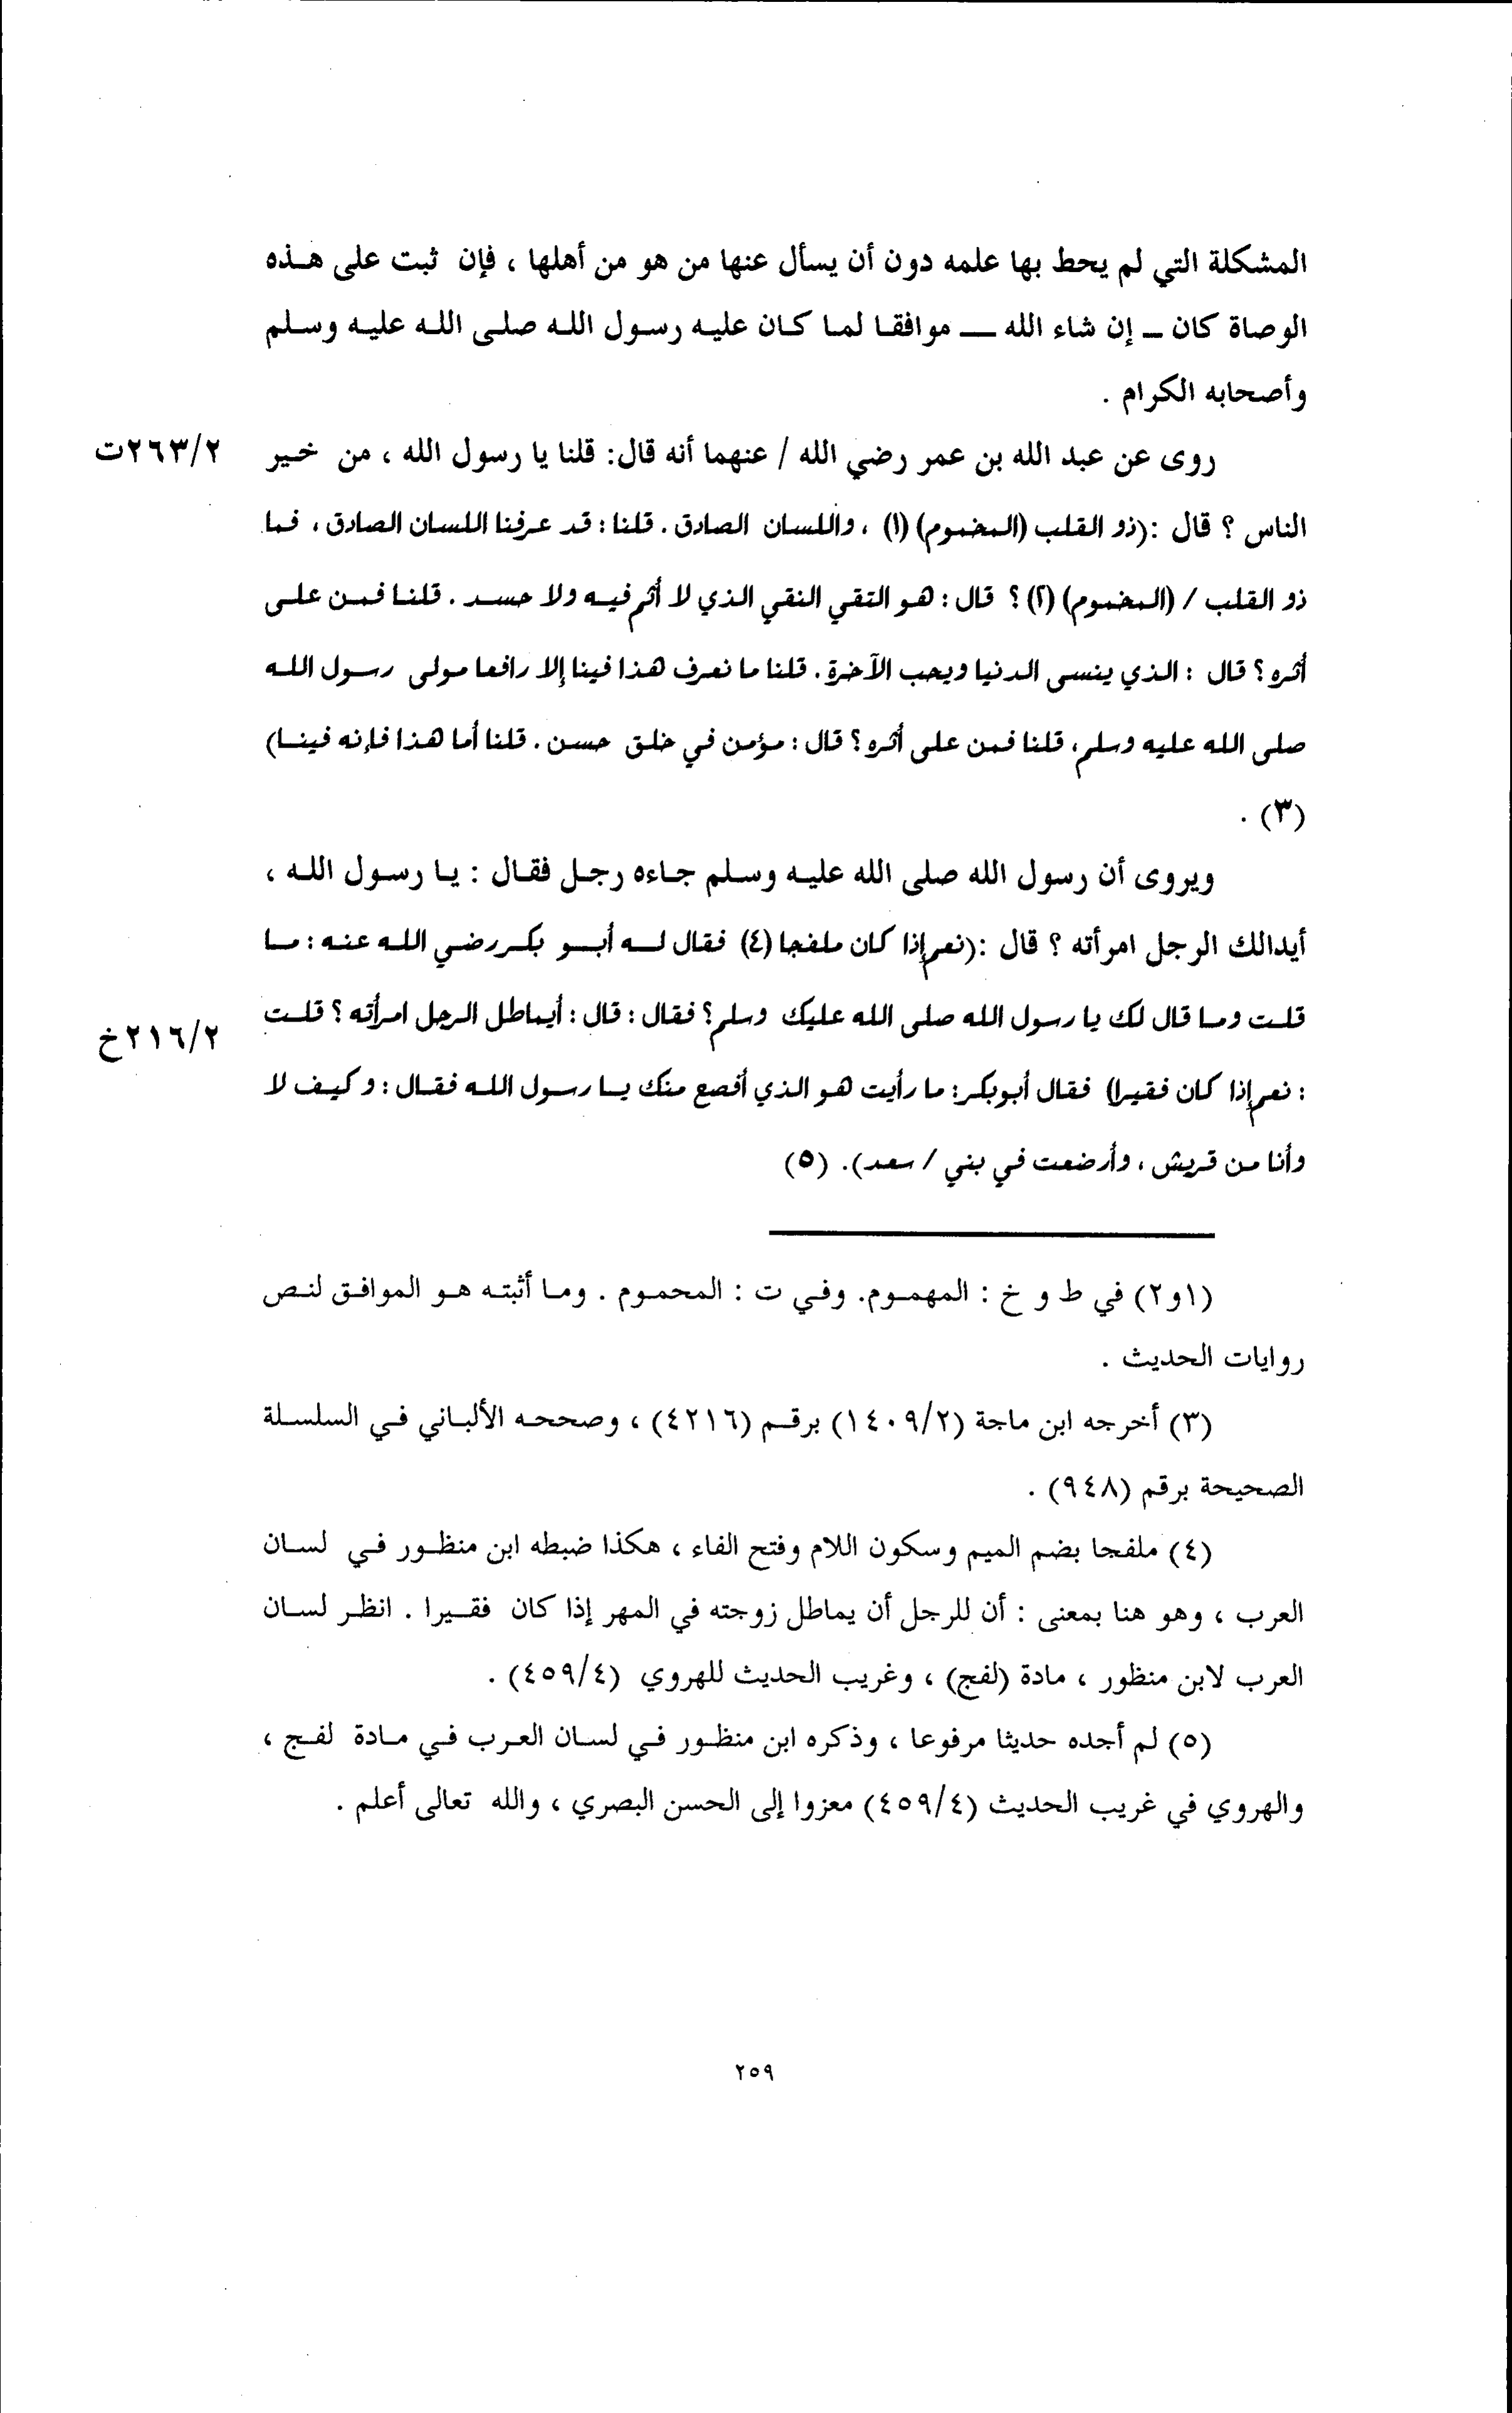 المشكلة التي لم يحط بها علمه دون أن يسأل عنها من هو من أهلها ، فإن ثبت على هذه
الوصاة كان – إن شاء الله – موافقا لما كان عليه رسول الله صلى الله عليه وسلم
وأصحابه الكرام .
روى عن عبد الله بن عمر رضي الله / عنهما أنه قال: قلنا يا رسول الله ، من خير
٢٦٣/٢ت
الناس ؟ قال :(ذو القلب (المخموم) (١) ، واللسان الصادق . قلنا : قد عرفنا اللسان الصادق ، فما
ذو القلب / (المخموم) (٢) ؟ قال : هو التقي النقي الذي لا أثم فيه ولا حسد . قلنا فمن على
أثره ؟ قال : الذي ينسى الدنيا ويحب الآخرة . قلنا ما نعرف هذا فينا إلا رافعا مولى رسول الله
صلى الله عليه وسلم، قلنا فمن على أثره ؟ قال : مؤمن في خلق حسن . قلنا أما هذا فإنه فينا)
(٣) .
ويروى أن رسول الله صلى الله عليه وسلم جاءه رجل فقال : يا رسول الله ،
أيدالك الرجل امرأته ؟ قال :(نعم إذا كان ملفجا (٤) فقال له أبو بكر رضي الله عنه : ما
قلت وما قال لك يا رسول الله صلى الله عليك وسلم؟ فقال : قال : أيماطل الرجل امرأته ؟ قلت
٢١٦/٢خ
: نعم إذا كان فقيرا) فقال أبوبكر: ما رأيت هو الذي أفصع منك يا رسول الله فقال : وكيف لا
وأنا من قريش ، وأرضعت في بني / سعد). (٥)
(١و٢) في ط و خ : المهموم. وفي ت : المحموم . وما أثبته هو الموافق لنص
روايات الحديث .
(٣) أخرجه ابن ماجة (١٤٠٩/٢) برقم (٤٢١٦) ، وصححه الألباني في السلسلة
الصحيحة برقم (٩٤٨) .
(٤) ملفجا بضم الميم وسكون اللام وفتح الفاء ، هكذا ضبطه ابن منظور في لسان
العرب ، وهو هنا بمعنى : أن للرجل أن يماطل زوجته في المهر إذا كان فقيرا . انظر لسان
العرب لابن منظور ، مادة (لفج) ، وغريب الحديث للهروي (٤٥٩/٤) .
(٥) لم أجده حديثا مرفوعا ، وذكره ابن منظور في لسان العرب في مادة لفج ،
والهروي في غريب الحديث (٤٥٩/٤) معزوا إلى الحسن البصري ، والله تعالى أعلم .
٢٥٩